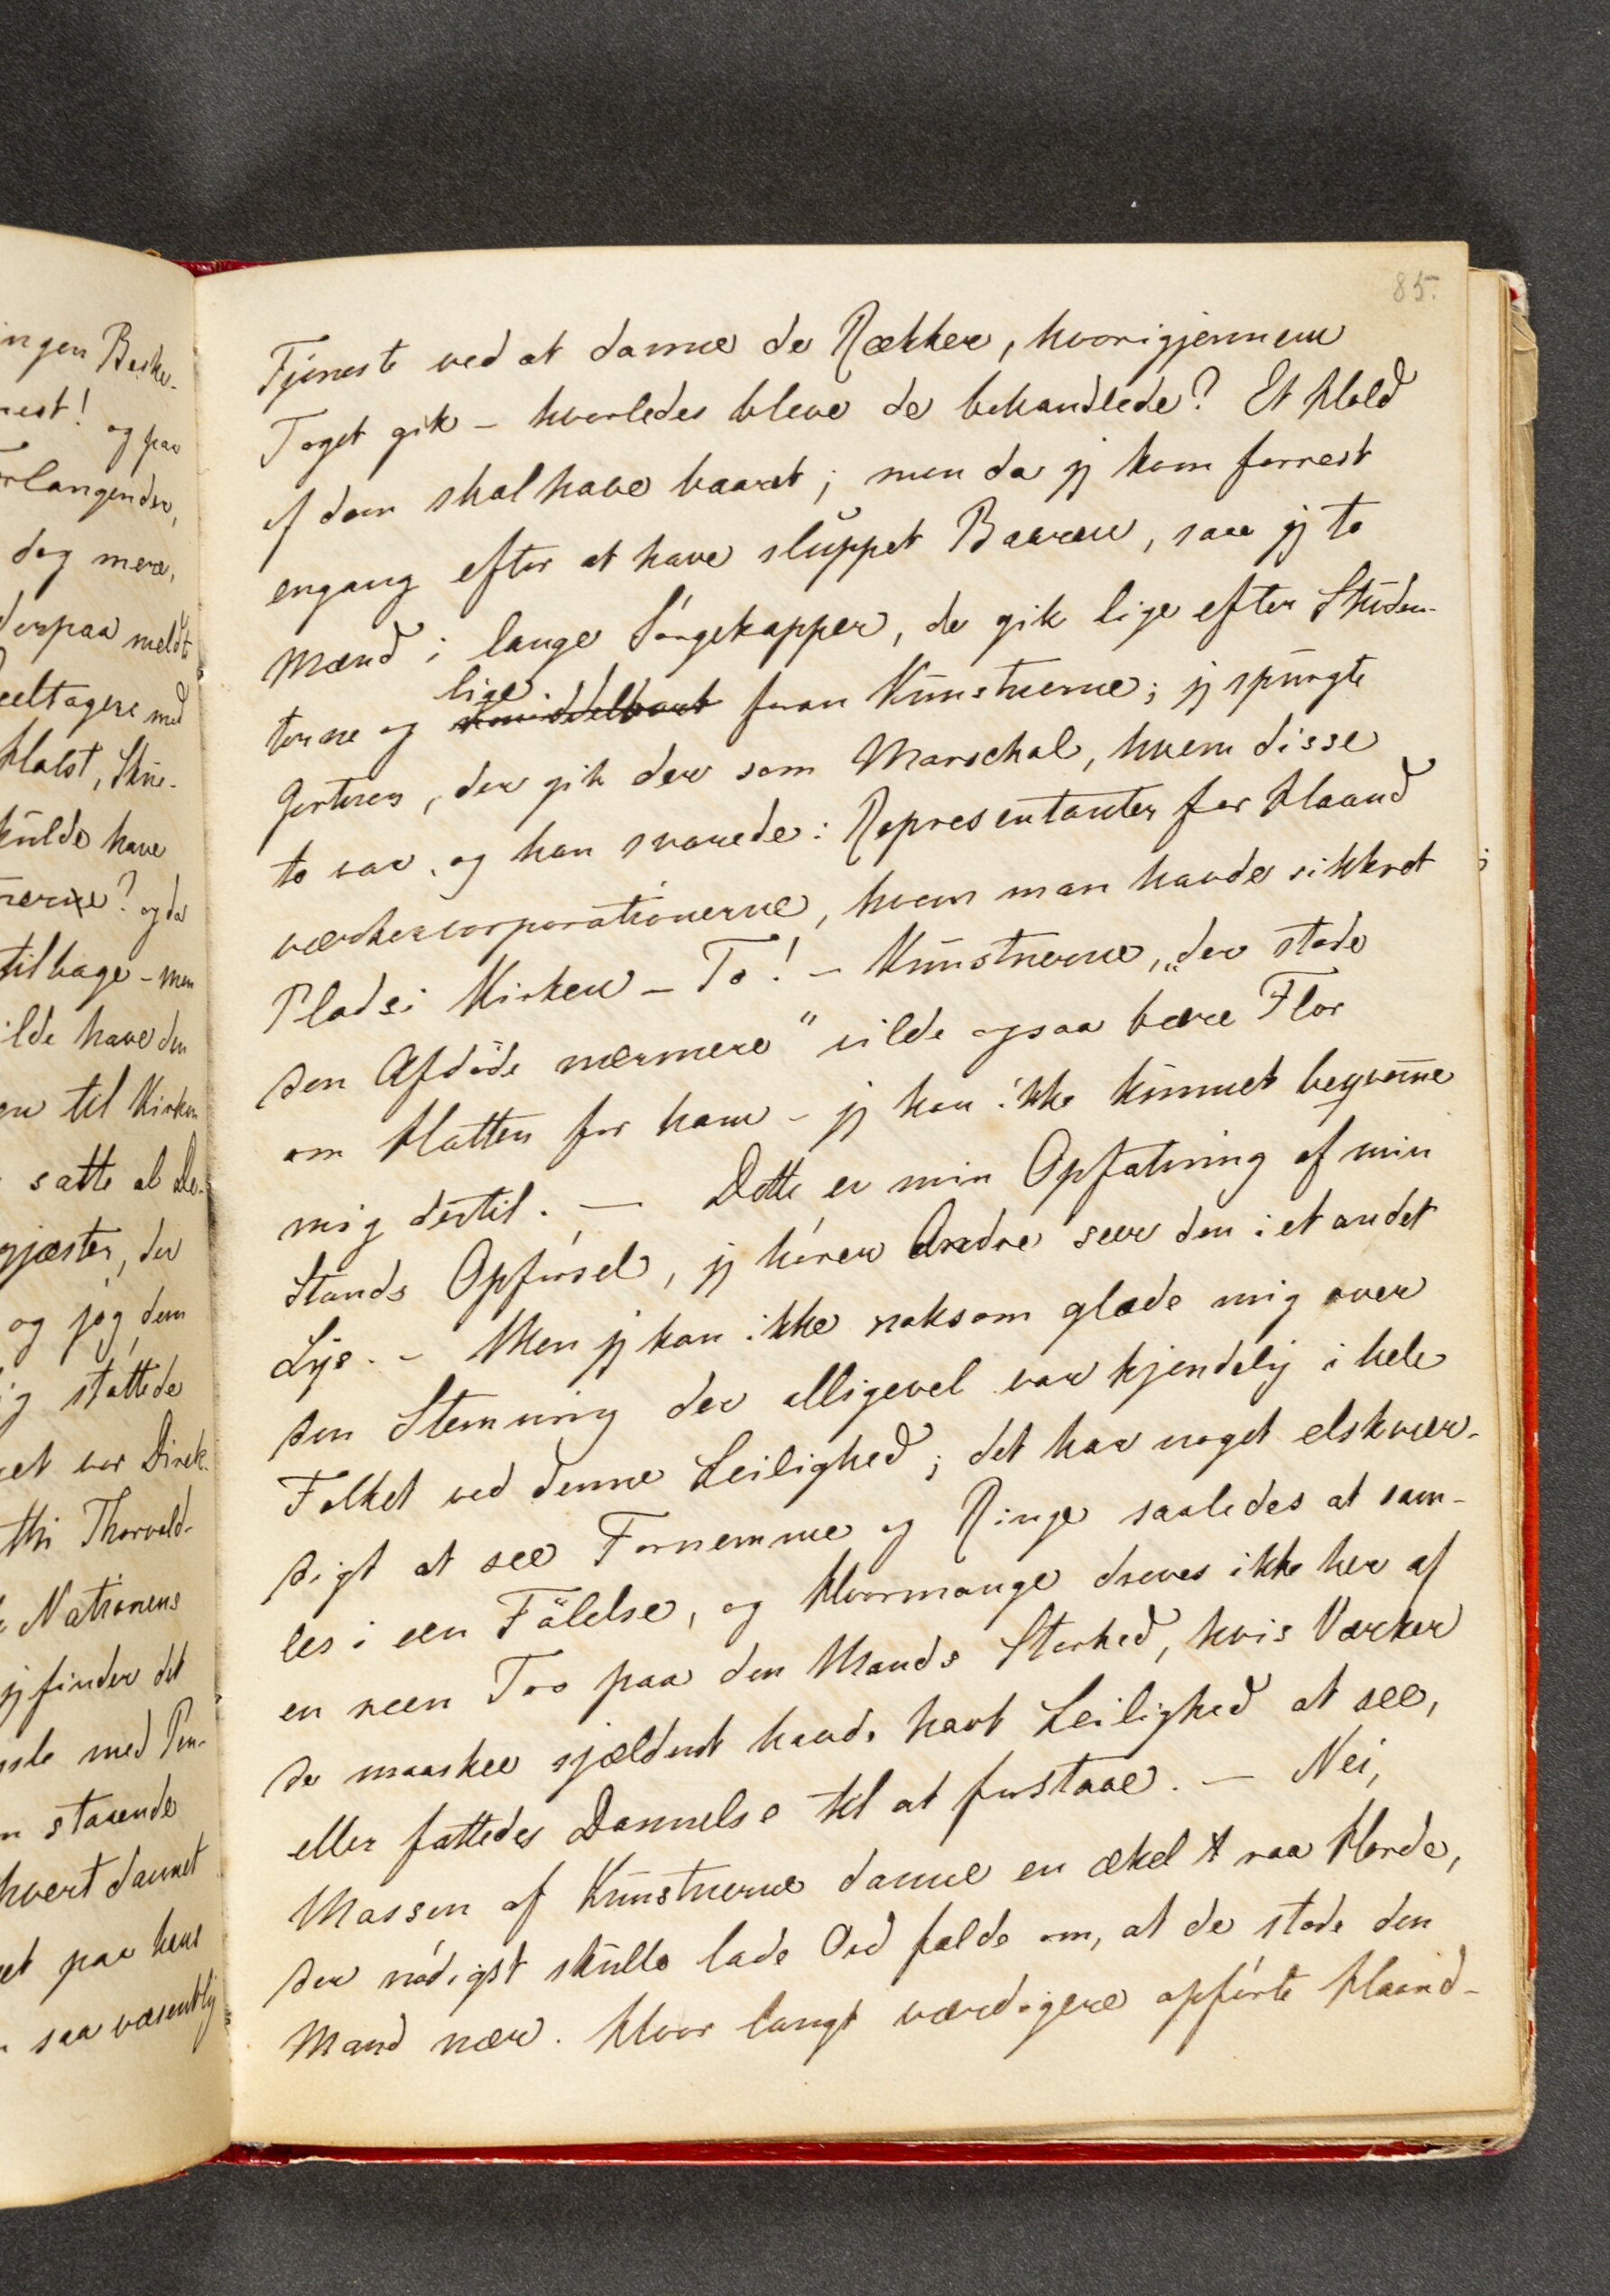 ingen Beske-
nest! og paa
orlangender,
dog mere,
derpaa meldt
eeltagere med
Holst, Skue-
kulde have
nerne? og da
tilbage – men
ilde have den
en til Kirken
satte al De-
gjæster, der
og jog dem
ig støttede
et var Direk-
thi Thorvald-
Nationens
jeg finder det
med Pen-
staaende
hvert dannet
et paa hans
saa væsentlig
85.
Tjeneste ved at danne de Rækker, hvorigjennem
Toget gik – hvorledes bleve de behandlede? Et Hold
af dem skal have baaret; men da jeg kom forrest
engang efter at have sluppet Baaren, saae jeg to
Mænd i lange Sørgekapper, de gik lige efter Studen-
lige
terne og umiddelbart foran Kunstnerne; jeg spurgte
Gertner, der gik der som Marschal, hvem disse
to var, og han svarede: Representanter for Haand
værkercorporationerne, hvem man havde sikkret
Plads i Kirken – To! – Kunstnerne, „der stode
den Afdøde nærmere“ vilde ogsaa bære Flor
om Hatten for ham – jeg har ikke kunnet beqvemme
mig dertil. — Dette er min Opfatning af min
Stands Opførsel, jeg hører Andre seer den i et andet
Lys. – Men jeg kan ikke noksom glæde mig over
den Stemning der alligevel var kjendelig i hele
Folket ved denne Leilighed; det har noget elskvær-
digt at see Fornemme og Ringe saaledes at sam-
les i een Følelse, og Hvormange dreves ikke her af
en reen Tro paa den Mands Storhed, hvis Værker
de maaskee sjældent havde havt Leilighed at see,
eller fattedes Dannelse til at forstaae. — Nei,
Massen af Kunstnerne danne en ækel raa Horde,
der nødigst skulle lade Ord falde om, at de stode den
Mand nær. Hvor langt værdigere opførte Haand-